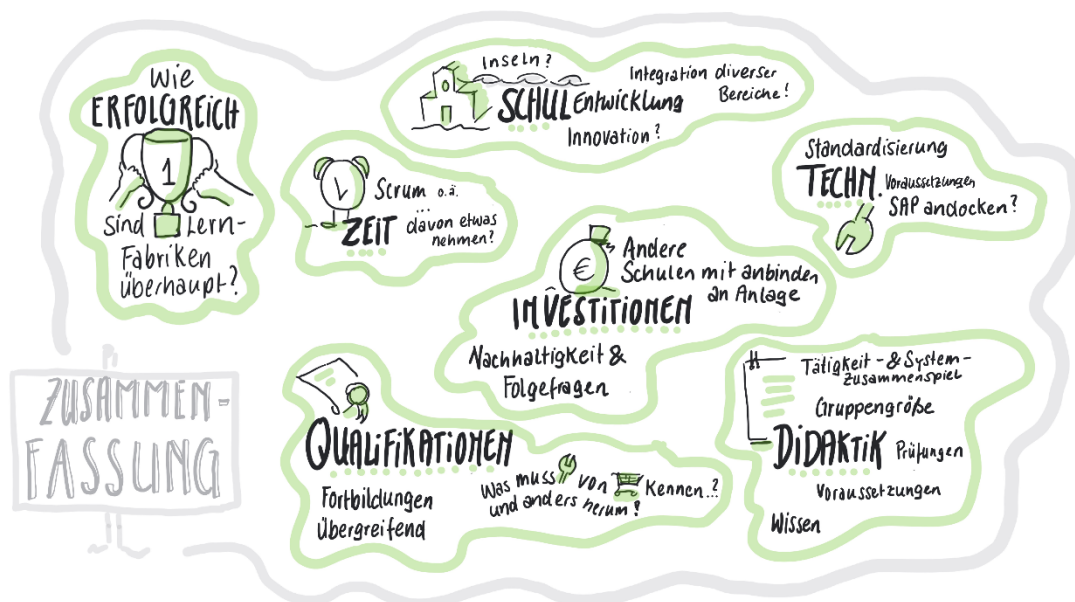 Wie
ERFOLGREICH
1
Sind Lern-
Fabriken
überhaupt?
Inseln?
Integration diverser
Bereiche!
SCHULEntwicklung
Innovation?
Scrum o.ä.
...
ZEIT davon etwas
nehmen?
Standardisierung
TECHN. Voraussetzungen
SAP andocken?
€
Andere
Schulen mit anbinden
an Anlage
INVESTITIONEN
Nachhaltigkeit &
Folgefragen
ZUSAMMEN-
FASSUNG
QUALIFIKATIONEN
Fortbildungen
übergreifend
Was muss von Kennen..?
und anders herum!
Tätigkeit-& System-
Zusammenspiel
Gruppengröße
DIDAKTIK Prüfungen
Voraussetzungen
Wissen